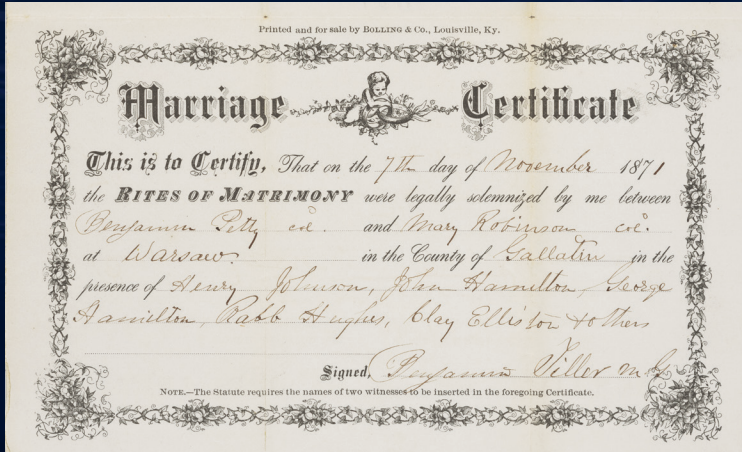 Printed and for sale by BOLLING & Co., Louisville, Ky.
Marriage Certificate
This is to Certify, That on the 7th day of November 1871
the RITES OF MATRIMONY were legally solemnized by me between
Benjamin Petty col. and Mary Robinson col.
at Warsaw. in the County of Gallatin in the
presence of Henry Johnson, John Hamilton, George
Hamilton, Rabb Hughes, Clay Ellison & others
Signed, Benjamin Tiller M. G.
NOTE.—The Statute requires the names of two witnesses to be inserted in the foregoing Certificate.